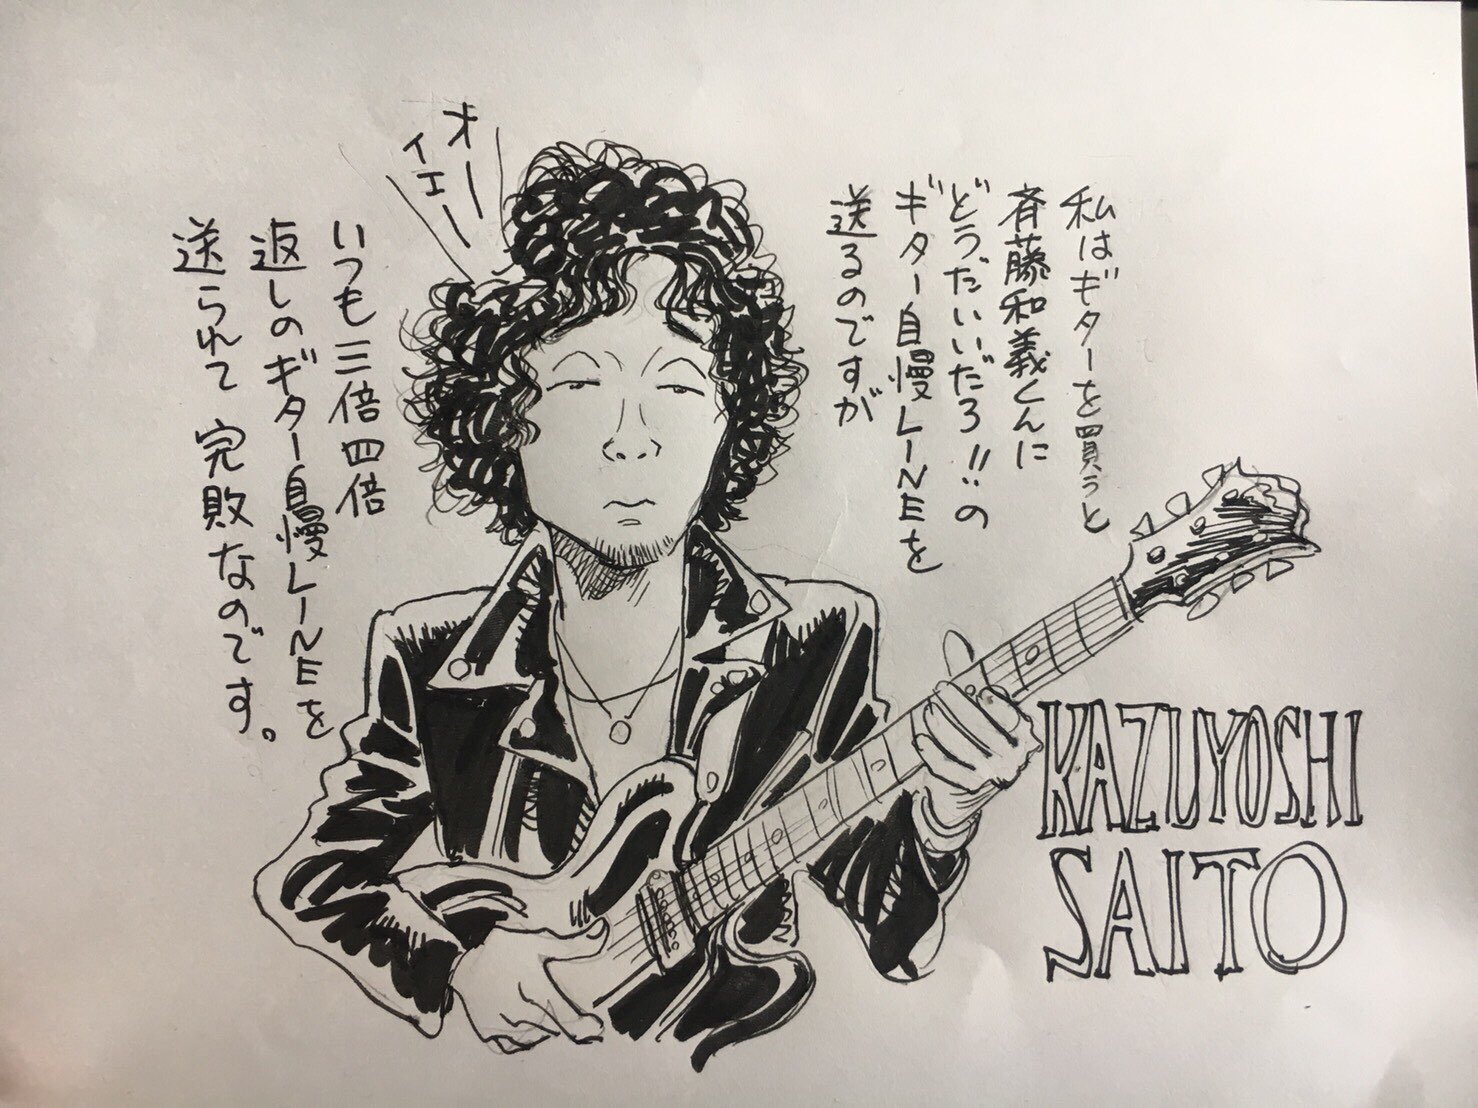 私はギターを買うと
斉藤和義くんに
どうだいいだろ!!の
ギター自慢LINEを
送るのですが
オー
イエー
いつも三倍四倍
返しのギター自慢LINEを
送られて完敗なのです。
KAZUYOSHI
SAITO